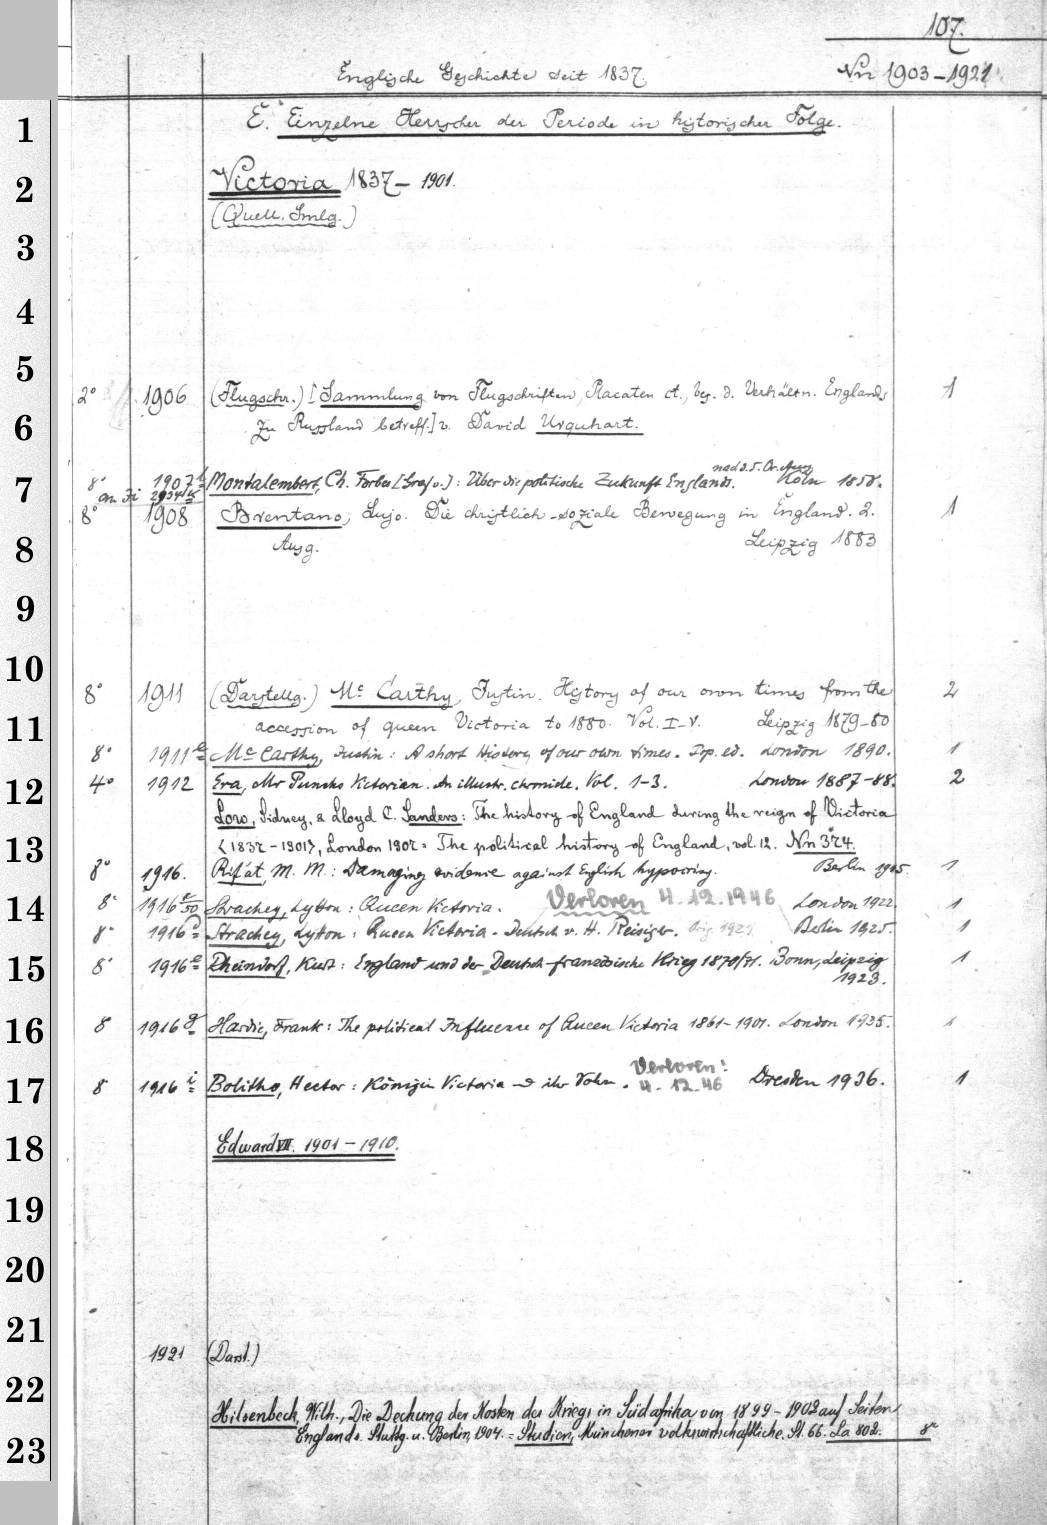 107.
Englische Geschichte seit 1837.
Nn 1903-1921
E. Einzelne Herrscher der Periode in historischer Folge.
Victoria 1837- 1901.
(Quell. Smlg.)
2° 1906 (Flugschr.) [Sammlung von Flugschriften, Placaten ct., bes. d. Verhältn. Englands 1
zu Russland betreff.] v. David Urquhart.
nach d. 5. Or.
8° 1907 Montalembert, Ch. Forbes [Graf v.]: Über die politische Zukunft Englands. Köln 1858.
an
8° 1908 Brentano, Lujo. Die christlich-soziale Bewegung in England. 2. 1
Ausg. Leipzig 1883
8° 1911 (Darstellg.) Mc Carthy, Justin. History of our own times from the 2
accession of queen Victoria to 1880. Vol. I-V. Leipzig 1879-80
8° 1911a Mc Carthy, Justin: A short History of our own times. Pop. ed. London 1890. 1
4° 1912 Era, Mr Punchs Victorian. An illustr. chronicle. Vol. 1-3. London 1887-88. 2
Low, Sidney, & Lloyd C. Sanders: The history of England during the reign of Victoria
<1837-1901>, London 1907 = The political history of England, vol. 12. Nn 374.
8° 1916. Rif'at, M. M.: Damaging evidence against English hypocrisy. Berlin 1915. 1
8° 1916 Strachey, Lytton: Queen Victoria. Verloren 4.12.1946 London 1922. 1
8° 1916 Strachey, Lytton: Queen Victoria. Deutsch v. H. Reisiger. Berlin 1925. 1
8° 1916e Rheindorf, Kurt: England und der Deutsch-französische Krieg 1870/71. Bonn, Leipzig 1
1923.
8° 1916g Hardie, Frank: The political Influence of Queen Victoria 1861-1901. London 1935. 1
Verloren!
8° 1916i Bolitho, Hector: Königin Victoria u ihr Sohn. 4.12.46 Dresden 1936. 1
Edward VII. 1901-1910.
1921 (Darst.)
Hilsenbeck, Wilh., Die Deckung der Kosten des Kriegs in Südafrika von 1899-1902 auf Seiten
Englands. Stuttg. u. Berlin, 1904. = Studien, Münchener volkswirtschaftliche. St. 66. La 802. 8°
1
2
3
4
5
6
7
8
9
10
11
12
13
14
15
16
17
18
19
20
21
22
23